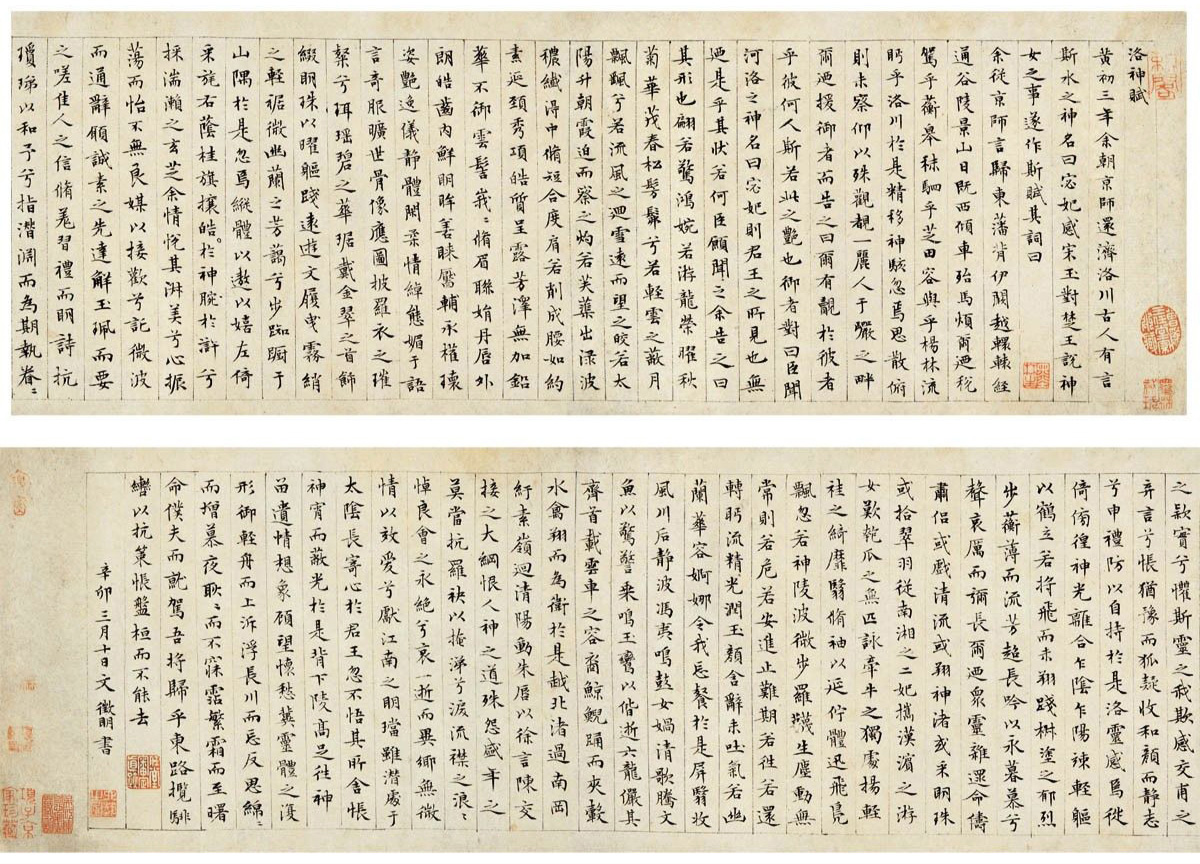 洛神賦
黄初三年余朝京師還濟洛川古人有言
斯水之神名曰宓妃感宋玉對楚王說神
女之事遂作斯賦其詞曰
余從京師言歸東藩背伊闕越轘轅經
通谷陵景山日既西傾車殆馬煩爾迺稅
駕乎蘅皋秣駟乎芝田容與乎楊林流
眄乎洛川於是精移神駭忽焉思散俯
則未察仰以殊觀覩一麗人于巖之畔
爾迺援御者而告之曰爾有覿於彼者
乎彼何人斯若此之艷也御者對曰臣聞
河洛之神名曰宓妃則君王之所見也無
迺是乎其狀若何臣願聞之余告之曰
其形也翩若驚鴻婉若游龍榮曜秋
菊華茂春松髣髴兮若輕雲之蔽月
飄颻兮若流風之迴雪遠而望之皎若太
陽升朝霞迫而察之灼若芙蕖出淥波
穠纖得中脩短合度肩若削成腰如約
素延頸秀項皓質呈露芳澤無加鉛
華不御雲髻峩〻脩眉聯娟丹唇外
朗皓齒內鮮明眸善睞靨輔承權瓌
姿艷逸儀靜體閑柔情綽態媚于語
言奇服曠世骨像應圖披羅衣之璀
粲兮珥瑤碧之華琚戴金翠之首飾
綴明珠以曜軀踐遠遊文履曳霧綃
之輕裾微幽蘭之芳藹兮步踟躕于
山隅於是忽焉縱體以遨以嬉左倚
采旄右蔭桂旗攘皓於神腕於滸兮
採湍瀨之玄芝余情悅其淑美兮心振
蕩而怡不無良媒以接歡兮託微波
而通辭願誠素之先達解玉珮而要
之嗟佳人之信脩羌習禮而明詩抗
瓊珶以和予兮指潛淵而為期執眷〻
之款實兮懼斯靈之我欺感交甫之
弃言兮悵猶豫而狐疑收和顏而靜志
兮申禮防以自持於是洛靈感焉徙
倚傍徨神光離合乍陰乍陽竦輕軀
以鶴立若將飛而未翔踐椒塗之郁烈
步蘅薄而流芳超長吟以永慕兮
聲哀厲而彌長爾迺眾靈雜遝命儔
嘯侶或戲清流或翔神渚或采明珠
或拾翠羽從南湘之二妃攜漢濱之游
女歎匏瓜之無匹詠牽牛之獨處揚輕
袿之綺靡翳脩袖以延佇體迅飛鳧
飄忽若神陵波微步羅襪生塵動無
常則若危若安進止難期若往若還
轉眄流精光潤玉顏含辭未吐氣若幽
蘭華容婀娜令我忘餐於是屏翳收
風川后靜波馮夷鳴鼓女媧清歌騰文
魚以驚警乘鳴玉鸞以偕逝六龍儼其
齊首載雲車之容裔鯨鯢踊而夾轂
水禽翔而為衛於是越北渚過南岡
紆素嶺迴清陽動朱唇以徐言陳交
接之大綱恨人神之道殊怨盛年之
莫當抗羅袂以掩涕兮淚流襟之浪〻
悼良會之永絕兮哀一逝而異鄉無微
情以效愛兮獻江南之明璫雖潛處于
太陰長寄心於君王忽不悟其所舍悵
神宵而蔽光於是背下陵高足往神
留遺情想象顧望懷愁冀靈體之復
形御輕舟而上泝浮長川而忘反思綿〻
而增慕夜耿〻而不寐霑繁霜而至曙
命僕夫而就駕吾將歸乎東路攬騑
轡以抗策悵盤桓而不能去
辛卯三月十日文徵明書